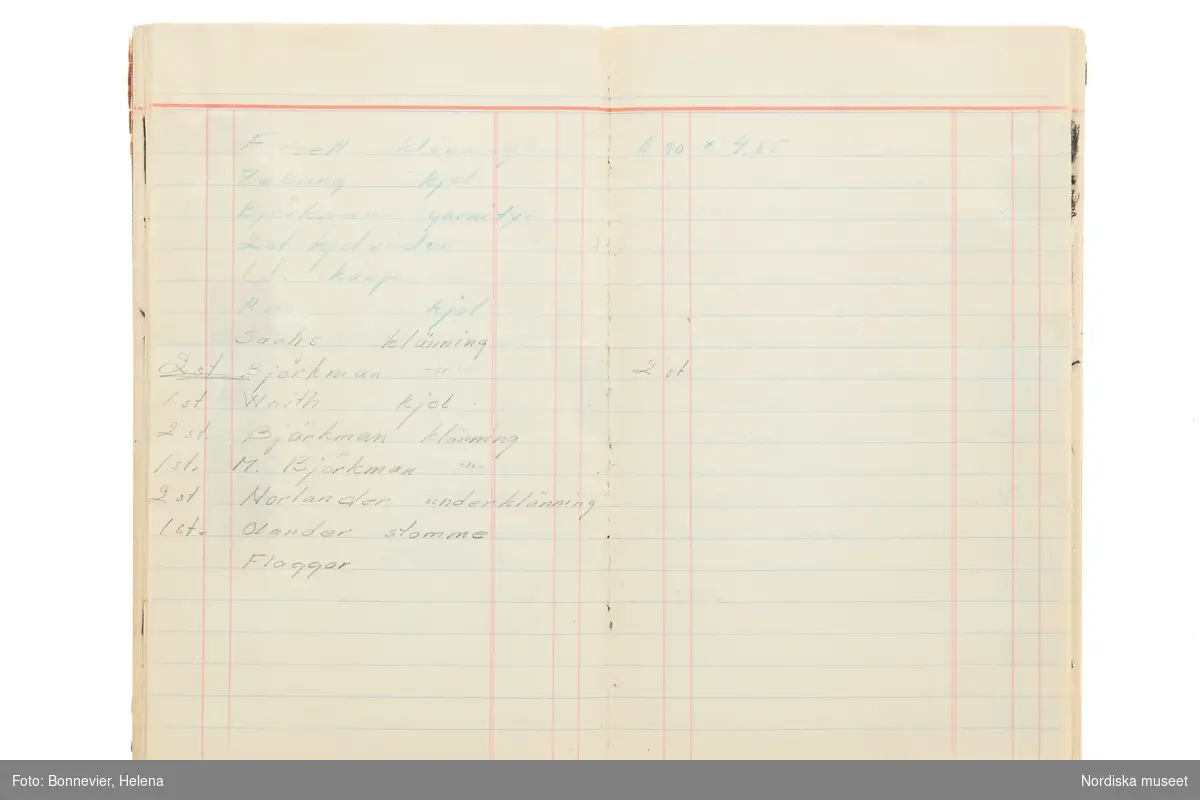 Forsell klänning 0.90 x 4.85
kjol
Björkman garnityr
2 st kjolvåder
kjol
Sachs klänning
2 st Björkman -"- 2 st
1 st Waith kjol
2 st. Björkman klänning
1 st. M. Björkman -"-
2 st Norlander underklänning
1 st. Olander stomme
Flaggor
Foto: Bonnevier, Helena
Nordiska museet